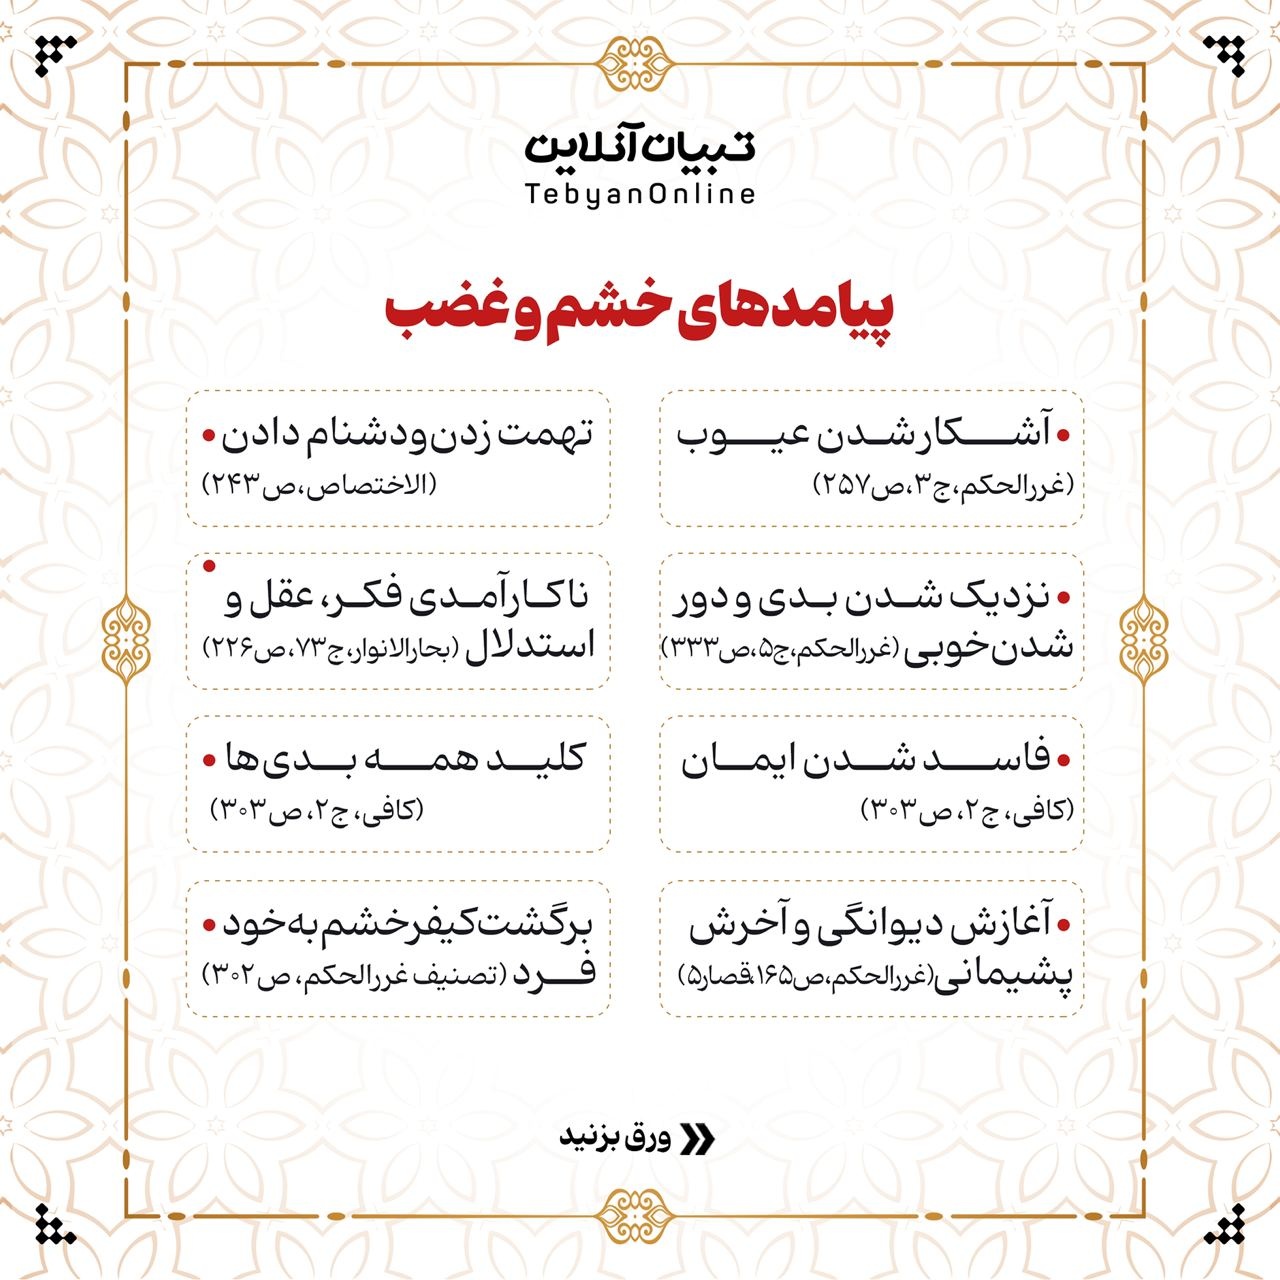 تبیان آنلاین
TebyanOnline
پیامدهای خشم و غضب
• آشکار شدن عیوب
(غررالحکم، ج۳، ص۲۵۷)
تهمت زدن و دشنام دادن •
(الاختصاص، ص۲۴۳)
• نزدیک شدن بدی و دور
شدن خوبی (غررالحکم، ج۵، ص۳۳۳)
ناکارآمدی فکر، عقل و •
استدلال (بحارالانوار، ج۷۳، ص۲۲۶)
• فاسد شدن ایمان
(کافی، ج۲، ص۳۰۳)
کلید همه بدی‌ها •
(کافی، ج۲، ص۳۰۳)
• آغازش دیوانگی و آخرش
پشیمانی (غررالحکم، ص۱۶۵، قصار۵)
برگشت کیفر خشم به خود •
فرد (تصنیف غررالحکم، ص۳۰۲)
ورق بزنید